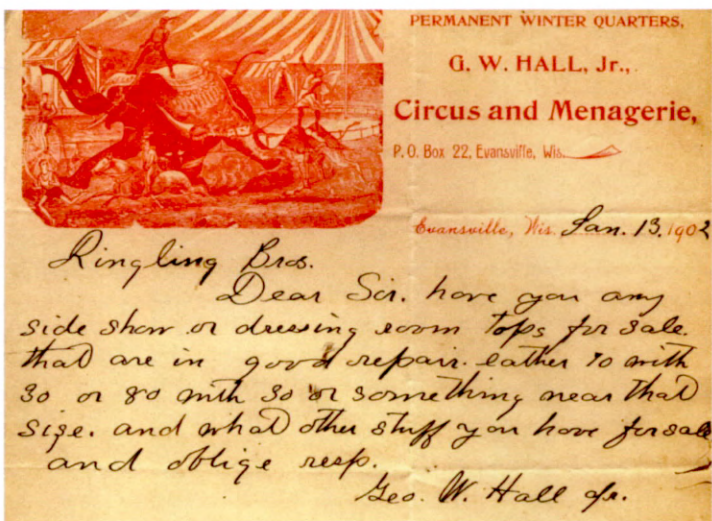 PERMANENT WINTER QUARTERS,
G. W. HALL, Jr.,
Circus and Menagerie,
P. O. Box 22, Evansville, Wis.
Evansville, Wis. Jan. 13, 1902
Ringling Bros.
Dear Sir. have you any
side show or dressing room tops for sale.
that are in good repair. eather 70 with
30 or 80 with 30 or something near that
size. and what other stuff you have for sale
and oblige resp.
Geo. W. Hall Jr.